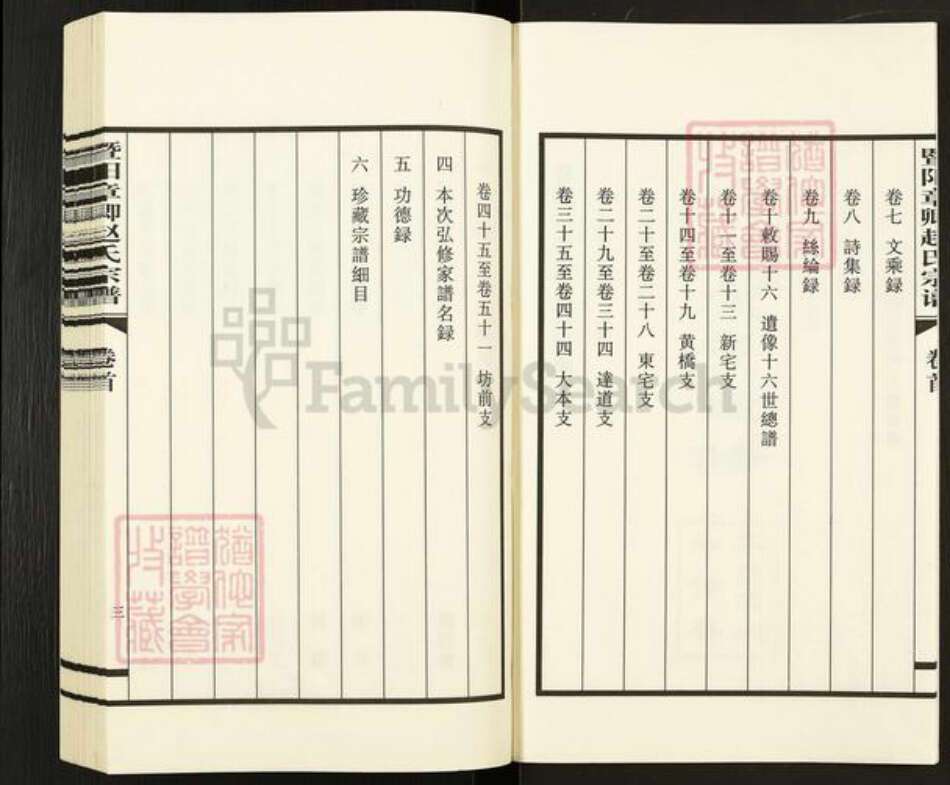 暨陽章卿趙氏宗譜 卷首
卷七 文乘録
卷八 詩集録
卷九 絲綸録
卷十敕賜十六 遺像十六世總譜
卷十一至卷十三 新宅支
卷十四至卷十九 黄橋支
卷二十至卷二十八 東宅支
卷二十九至卷三十四 達道支
卷三十五至卷四十四 大本支
卷四十五至卷五十一 坊前支
四 本次弘修家譜名録
五 功德録
六 珍藏宗譜細目
暨陽章卿趙氏宗譜 卷首
三
猶他家譜學會收藏
猶他家譜學會收藏
FamilySearch